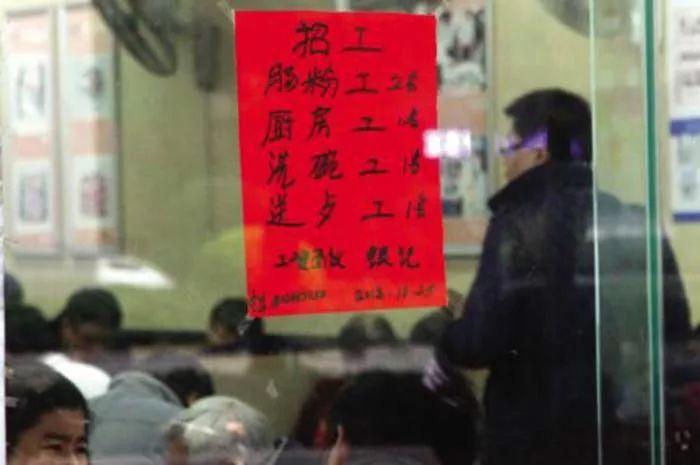 招工
肠粉工 2名
厨房工 1名
洗碗工 1名
送歺工 1名
工资面议 银记